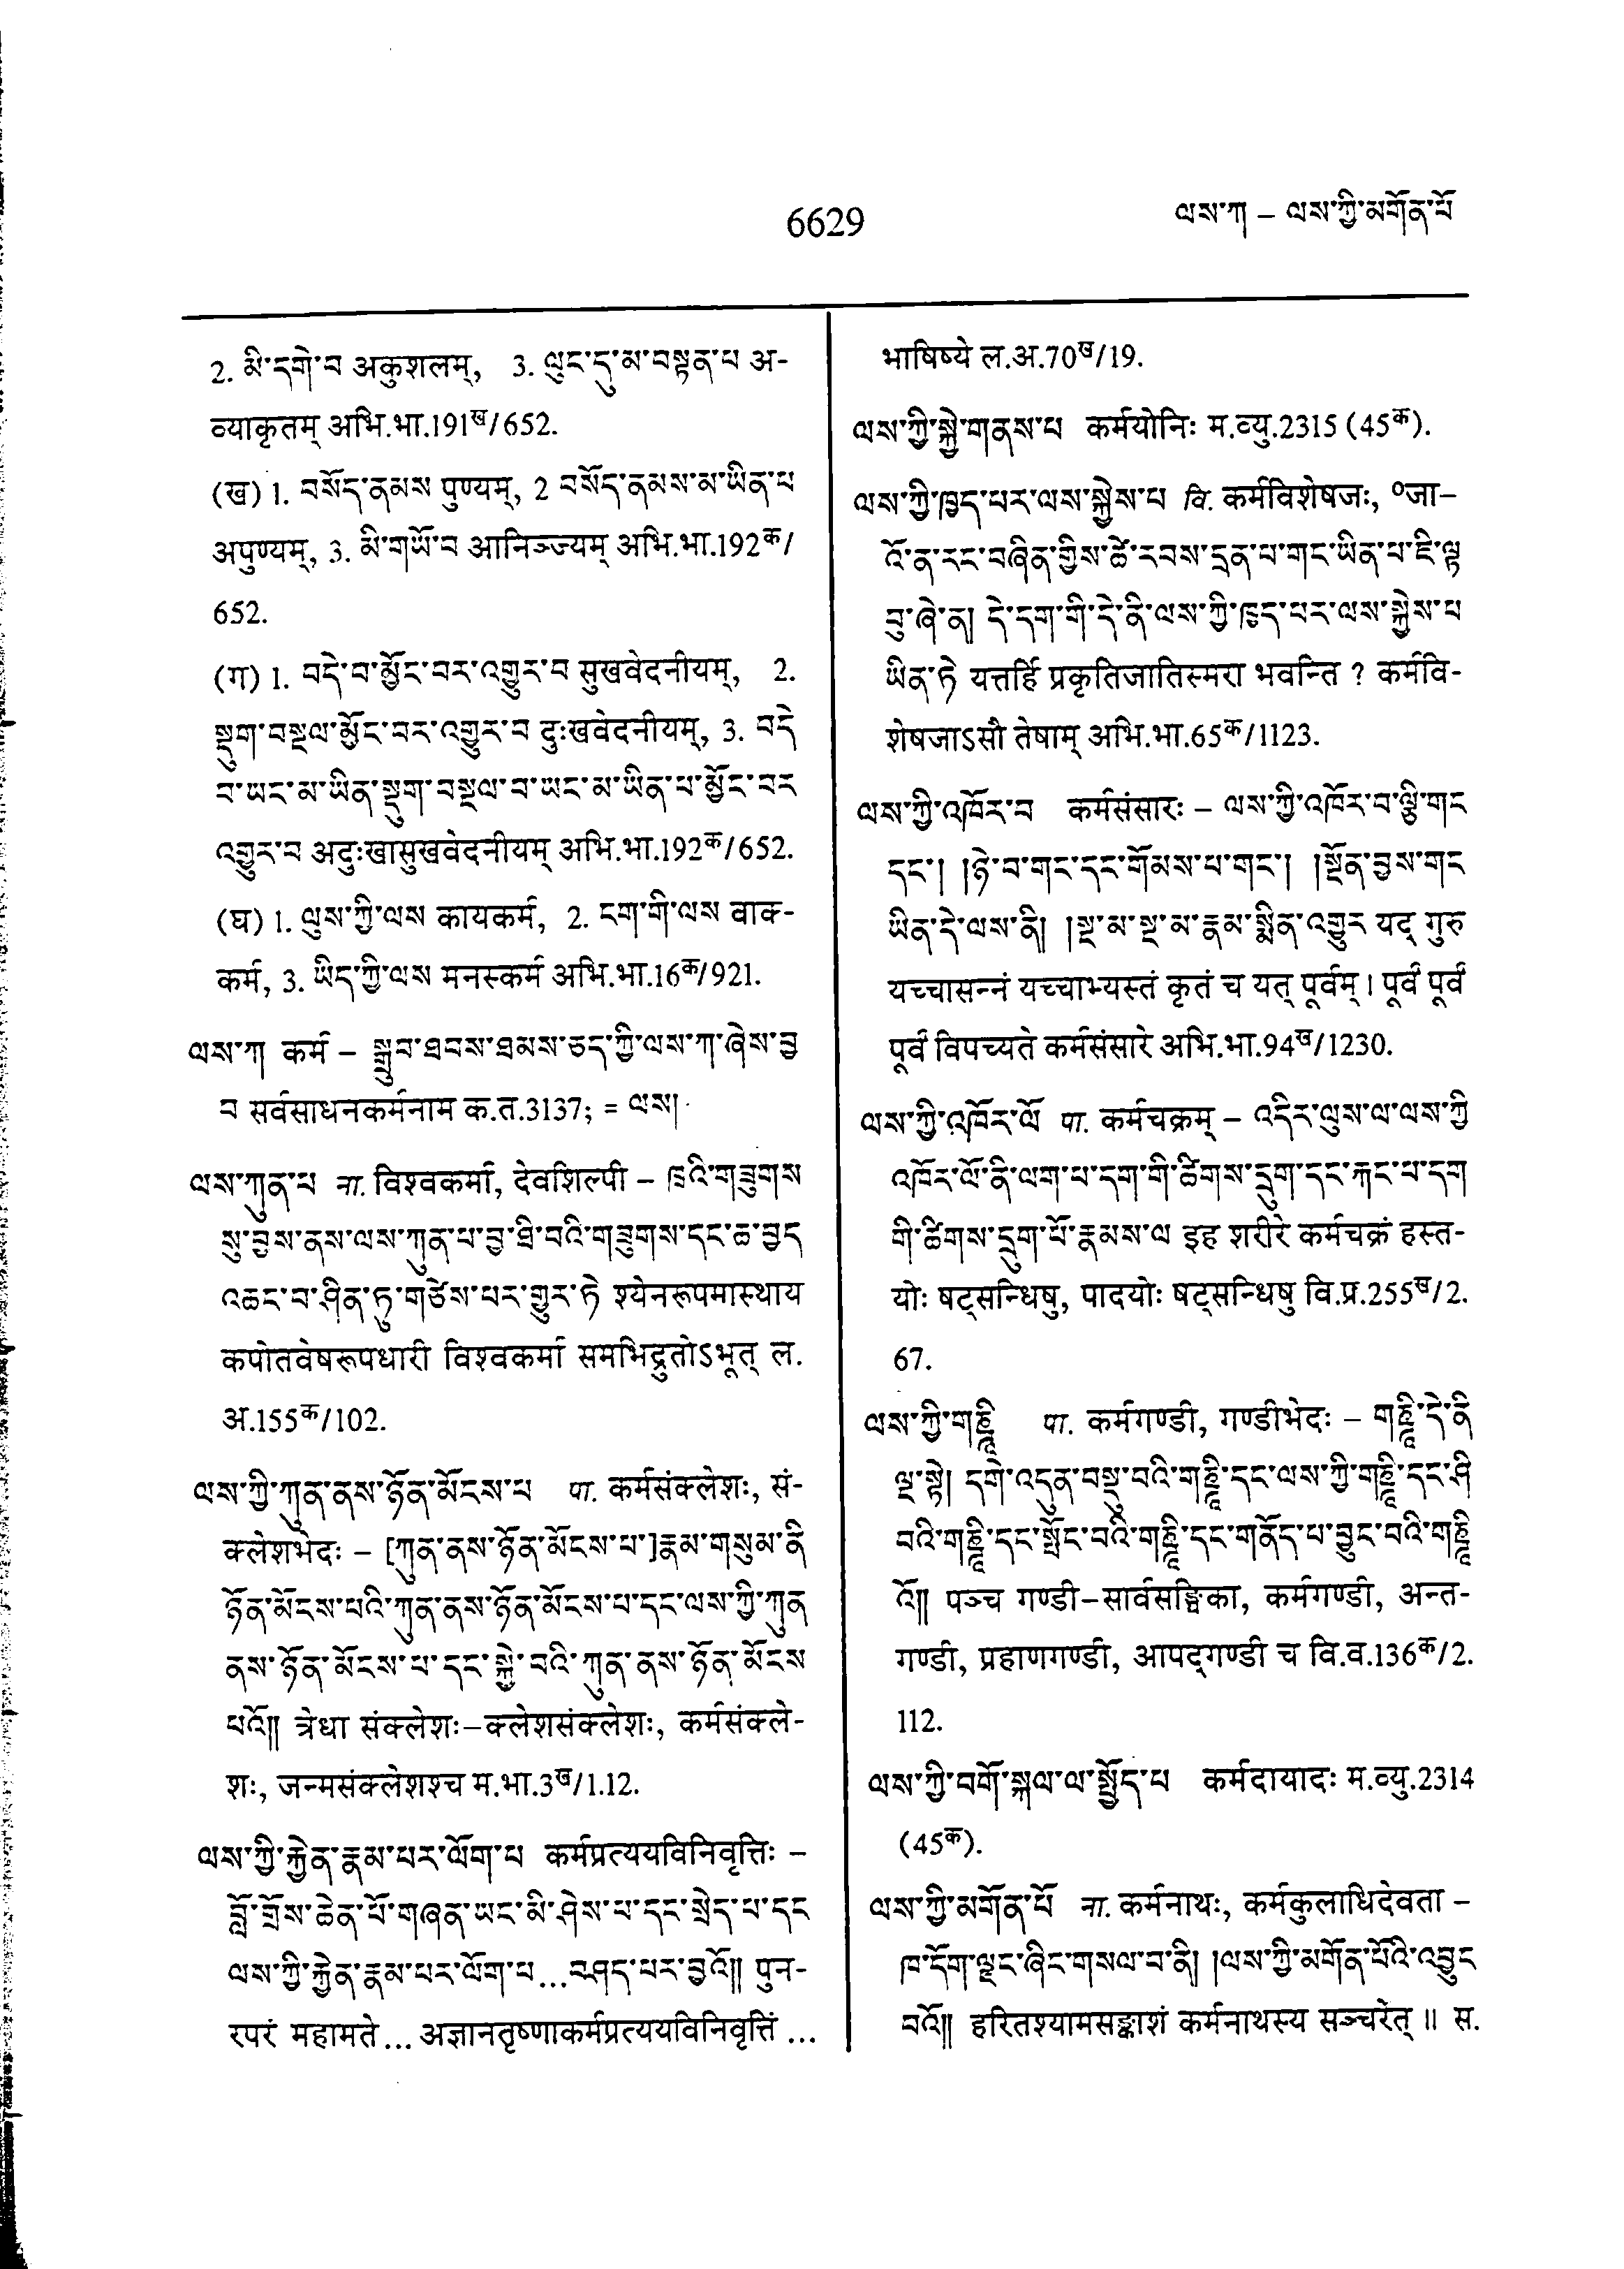 6629
ལས་ཀ – ལས་ཀྱི་མགོན་པོ
2. མི་དགེ་བ अकुशलम्, 3. ལུང་དུ་མ་བསྟན་པ अ-
व्याकृतम् अभि.भा.191ख/652.
(ख) 1. བསོད་ནམས पुण्यम्, 2 བསོད་ནམས་མ་ཡིན་པ
अपुण्यम्, 3. མི་གཡོ་བ आनिञ्ज्यम् अभि.भा.192क/
652.
(ग) 1. བདེ་བ་མྱོང་བར་འགྱུར་བ सुखवेदनीयम्, 2.
སྡུག་བསྔལ་མྱོང་བར་འགྱུར་བ दुःखवेदनीयम्, 3. བདེ
བ་ཡང་མ་ཡིན་སྡུག་བསྔལ་བ་ཡང་མ་ཡིན་པ་མྱོང་བར
འགྱུར་བ अदुःखासुखवेदनीयम् अभि.भा.192क/652.
(घ) 1. ལུས་ཀྱི་ལས कायकर्म, 2. ངག་གི་ལས वाक्-
कर्म, 3. ཡིད་ཀྱི་ལས मनस्कर्म अभि.भा.16क/921.
ལས་ཀ कर्म – སྒྲུབ་ཐབས་ཐམས་ཅད་ཀྱི་ལས་ཀ་ཞེས་བྱ
བ सर्वसाधनकर्मनाम क.त.3137; = ལས།
ལས་ཀུན་པ ना. विश्वकर्मा, देवशिल्पी – ཁྲའི་གཟུགས
སུ་བྱས་ནས་ལས་ཀུན་པ་བྱ་ཐི་བའི་གཟུགས་དང་ཆ་བྱད
འཆང་བ་ཤིན་ཏུ་གཙེས་པར་གྱུར་ཏེ श्येनरूपमास्थाय
कपोतवेषरूपधारी विश्वकर्मा समभिद्रुतोऽभूत् ल.
अ.155क/102.
ལས་ཀྱི་ཀུན་ནས་ཉོན་མོངས་པ पा. कर्मसंक्लेशः, सं-
क्लेशभेदः – [ཀུན་ནས་ཉོན་མོངས་པ་]རྣམ་གསུམ་ནི
ཉོན་མོངས་པའི་ཀུན་ནས་ཉོན་མོངས་པ་དང་ལས་ཀྱི་ཀུན
ནས་ཉོན་མོངས་པ་དང་སྐྱེ་བའི་ཀུན་ནས་ཉོན་མོངས
པའོ།། त्रेधा संक्लेशः–क्लेशसंक्लेशः, कर्मसंक्ले-
शः, जन्मसंक्लेशश्च म.भा.3ख/1.12.
ལས་ཀྱི་རྐྱེན་རྣམ་པར་ལོག་པ कर्मप्रत्ययविनिवृत्तिः –
བློ་གྲོས་ཆེན་པོ་གཞན་ཡང་མི་ཤེས་པ་དང་སྲེད་པ་དང
ལས་ཀྱི་རྐྱེན་རྣམ་པར་ལོག་པ...བཤད་པར་བྱའོ།། पुन-
रपरं महामते ... अज्ञानतृष्णाकर्मप्रत्ययविनिवृत्तिं ...
भाषिष्ये ल.अ.70ख/19.
ལས་ཀྱི་སྐྱེ་གནས་པ कर्मयोनिः म.व्यु.2315 (45क).
ལས་ཀྱི་ཁྱད་པར་ལས་སྐྱེས་པ वि. कर्मविशेषजः, ०जा–
འོ་ན་རང་བཞིན་གྱིས་ཚེ་རབས་དྲན་པ་གང་ཡིན་པ་ཇི་ལྟ
བུ་ཞེ་ན། དེ་དག་གི་དེ་ནི་ལས་ཀྱི་ཁྱད་པར་ལས་སྐྱེས་པ
ཡིན་ཏེ यत्तर्हि प्रकृतिजातिस्मरा भवन्ति ? कर्मवि-
शेषजाऽसौ तेषाम् अभि.भा.65क/1123.
ལས་ཀྱི་འཁོར་བ कर्मसंसारः – ལས་ཀྱི་འཁོར་བ་ལྕི་གང
དང་། །ཉེ་བ་གང་དང་གོམས་པ་གང་། །སྔོན་བྱས་གང
ཡིན་དེ་ལས་ནི། །སྔ་མ་སྔ་མ་རྣམ་སྨིན་འགྱུར यद् गुरु
यच्चासन्नं यच्चाभ्यस्तं कृतं च यत् पूर्वम् । पूर्वं पूर्वं
पूर्वं विपच्यते कर्मसंसारे अभि.भा.94ख/1230.
ལས་ཀྱི་འཁོར་ལོ पा. कर्मचक्रम् – འདིར་ལུས་ལ་ལས་ཀྱི
འཁོར་ལོ་ནི་ལག་པ་དག་གི་ཚིགས་དྲུག་དང་རྐང་པ་དག
གི་ཚིགས་དྲུག་པོ་རྣམས་ལ इह शरीरे कर्मचक्रं हस्त-
योः षट्सन्धिषु, पादयोः षट्सन्धिषु वि.प्र.255ख/2.
67.
ལས་ཀྱི་གཎྜཱི पा. कर्मगण्डी, गण्डीभेदः – གཎྜཱི་དེ་ནི
ལྔ་སྟེ། དགེ་འདུན་བསྡུ་བའི་གཎྜཱི་དང་ལས་ཀྱི་གཎྜཱི་དང་ཤི
བའི་གཎྜཱི་དང་སྤོང་བའི་གཎྜཱི་དང་གནོད་པ་བྱུང་བའི་གཎྜཱི
འོ།། पञ्च गण्डी–सार्वसङ्घिका, कर्मगण्डी, अन्त-
गण्डी, प्रहाणगण्डी, आपद्गण्डी च वि.व.136क/2.
112.
ལས་ཀྱི་བགོ་སྐལ་ལ་སྤྱོད་པ कर्मदायादः म.व्यु.2314
(45क).
ལས་ཀྱི་མགོན་པོ ना. कर्मनाथः, कर्मकुलाधिदेवता –
ཁ་དོག་ལྗང་ཞིང་གསལ་བ་ནི། །ལས་ཀྱི་མགོན་པོའི་འབྱུང
བའོ།། हरितश्यामसङ्काशं कर्मनाथस्य सञ्चरेत् ॥ स.